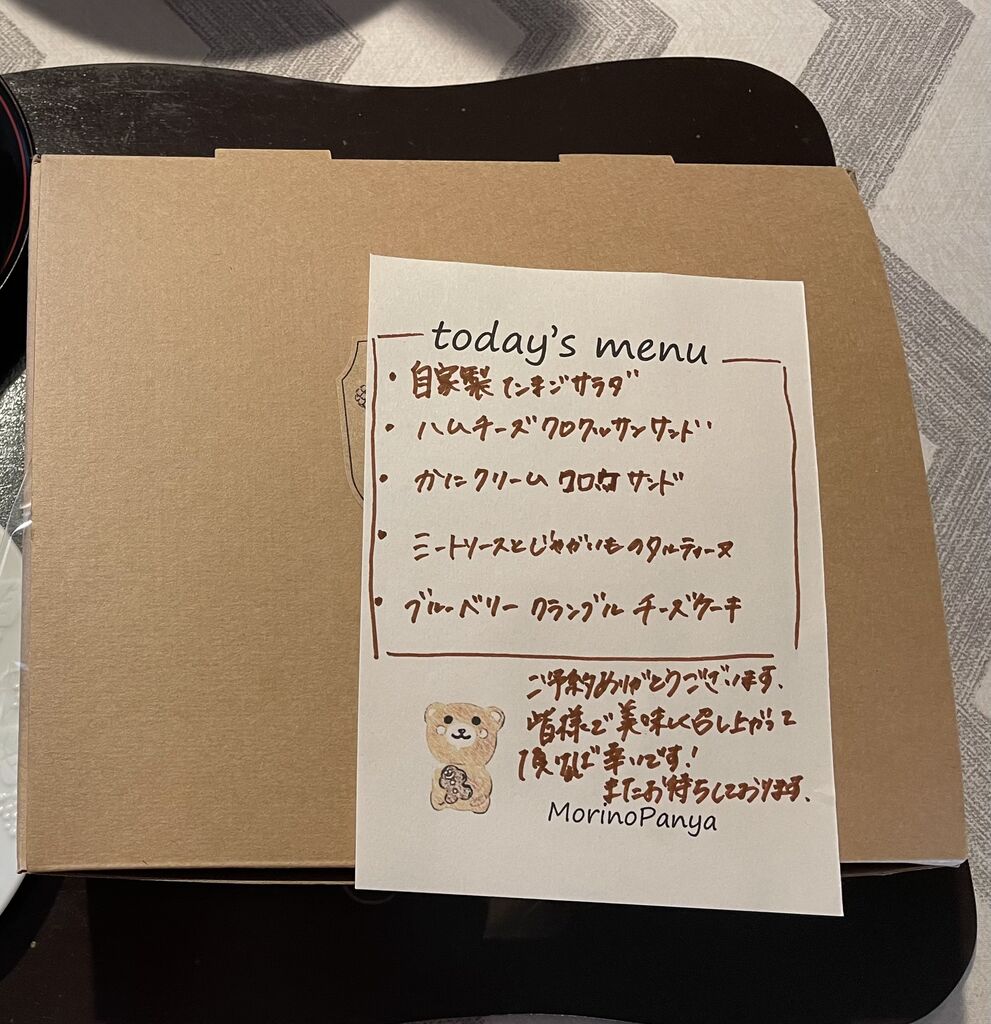 today's menu
・自家製たまごサラダ
・ハムチーズクロワッサンサンド
・かにクリームコロッケサンド
・ミートソースとじゃがいものタルティーヌ
・ブルーベリークランブルチーズケーキ
ご予約ありがとうございます、
皆様で美味しく召し上がって
頂ければ幸いです!
またお待ちしております、
MorinoPanya